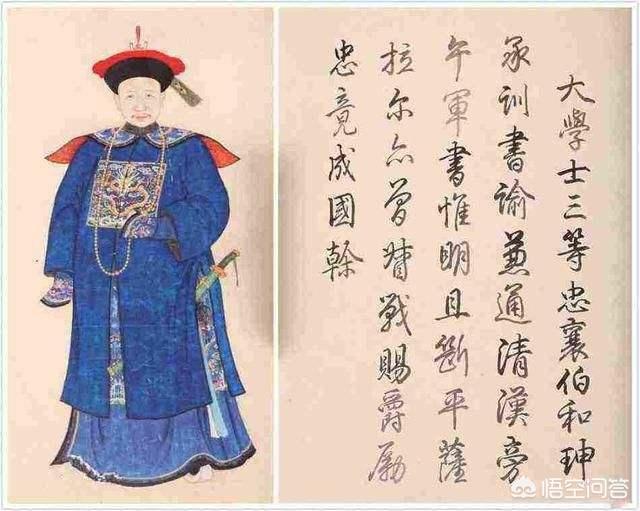 大學士三等忠襄伯和珅
承訓書諭兼通清漢旁
午軍書惟明且斷平薩
拉尔亦曾督戰賜爵勵
忠竟成國幹
悟空问答